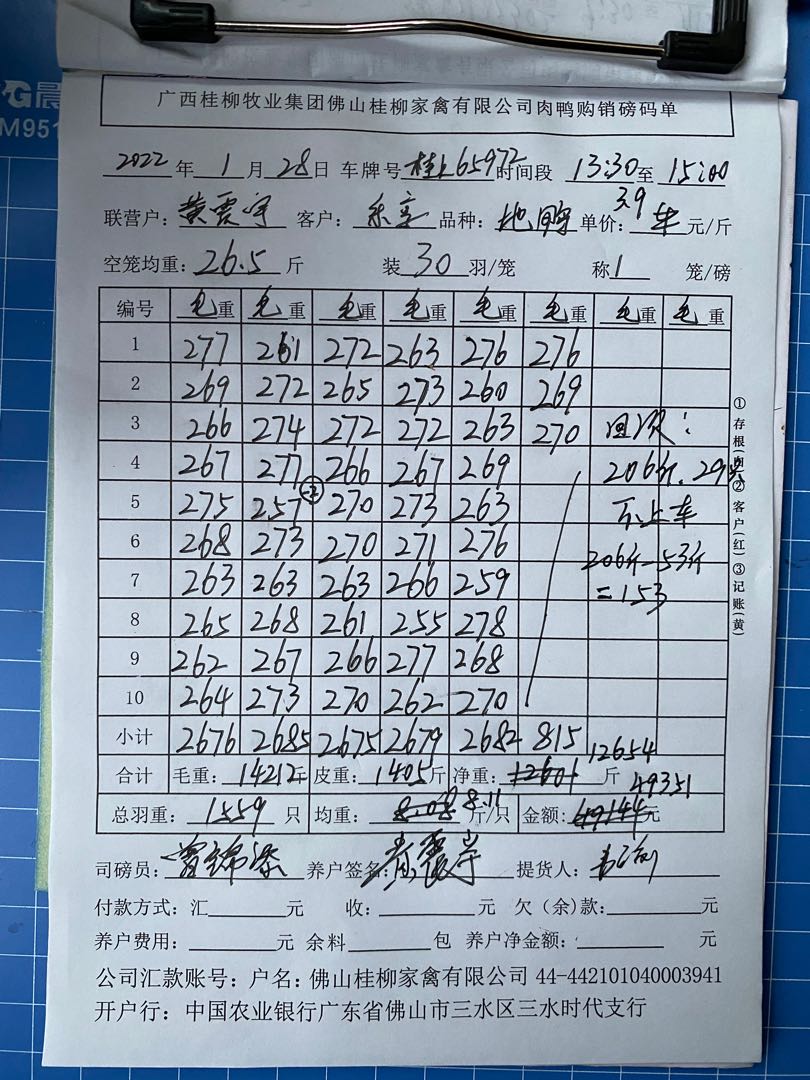 G晨
M951
广西桂柳牧业集团佛山桂柳家禽有限公司肉鸭购销磅码单
2022年1月28日 车牌号 65972 时间段 13:30至15:00
联营户：黄震宇 客户： 品种：地鸭 单价：3.9 车 元/斤
空笼均重：26.5斤 装30羽/笼 称1笼/磅
编号 毛重 毛重 毛重 毛重 毛重 毛重 毛重 毛重
1 277 261 272 263 276 276
2 269 272 265 273 260 269
3 266 274 272 272 263 270 回收：
4 267 277 266 267 269 206斤、29只
5 275 257 -2 270 273 263 不上车
6 268 273 270 271 276 206斤-53斤
7 263 263 263 266 259 =153
8 265 268 261 255 278
9 262 267 266 277 268
10 264 273 270 262 270
小计 2676 2685 2675 2679 2682 815
合计 毛重：14212斤 皮重：1405斤 净重：12601 12654 斤
总羽重：1559只 均重：8.08 8.11 斤/只 金额：49144 49351 元
司磅员： 养户签名：黄震宇 提货人：
付款方式：汇 元 收： 元 欠（余）款： 元
养户费用： 元 余料 包 养户净金额： 元
公司汇款账号：户名：佛山桂柳家禽有限公司 44-442101040003941
开户行：中国农业银行广东省佛山市三水区三水时代支行
①存根(白)②客户(红)③记账(黄)